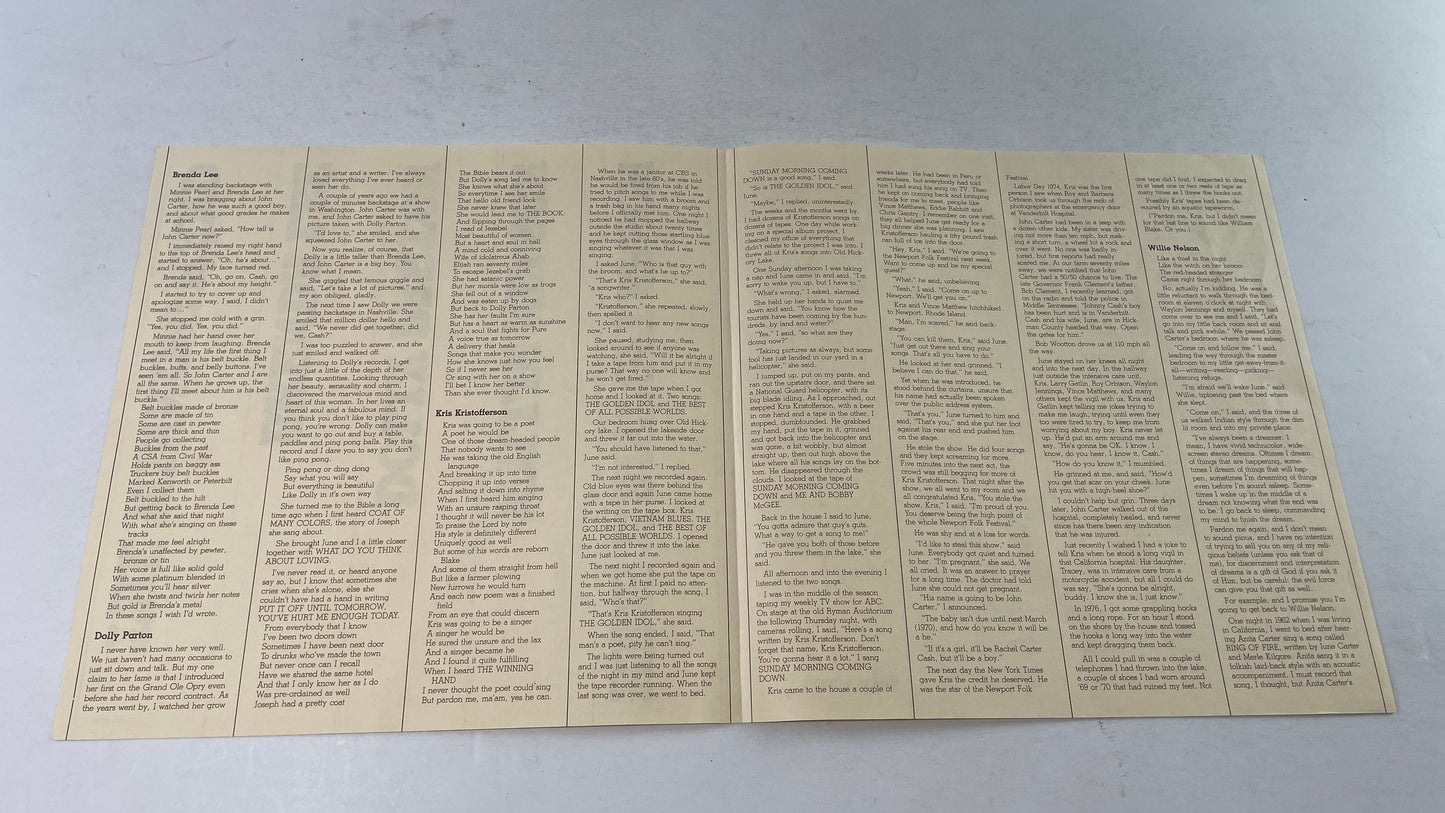 Brenda Lee
I was standing backstage with
Minnie Pearl and Brenda Lee at her
right. I was bragging about John
Carter, how he was such a good boy,
and about what good grades he makes
at school.
Minnie Pearl asked, "How tall is
John Carter now?"
I immediately raised my right hand
to the top of Brenda Lee's head and
started to answer, "Oh, he's about..."
and I stopped. My face turned red.
Brenda said, "Oh, go on, Cash, go
on and say it. He's about my height."
I started to try to cover up and
apologize some way. I said, I didn't
mean to..."
She stopped me cold with a grin.
"Yes, you did. Yes, you did."
Minnie had her hand over her
mouth to keep from laughing. Brenda
Lee said, "All my life the first thing I
meet in a man is his belt buckle. Belt
buckles, butts, and belly buttons. I've
seen 'em all. So John Carter and I are
all the same. When he grows up, the
first thing I'll meet about him is his belt
buckle."
Belt buckles made of bronze
Some are made of tin
Some are cast in pewter
Some are thick and thin
People go collecting
Buckles from the past
A CSA from Civil War
Holds pants on baggy ass
Truckers buy belt buckles
Marked Kenworth or Peterbilt
Even I collect them
Belt buckled to the hilt
But getting back to Brenda Lee
And what she said that night
With what she's singing on these
tracks
That made me feel alright
Brenda's unaffected by pewter,
bronze or tin
Her voice is full like solid gold
With some platinum blended in
Sometimes you'll hear silver
When she twists and twirls her notes
But gold is Brenda's metal
In these songs I wish I'd wrote.
Dolly Parton
I never have known her very well.
We just haven't had many occasions to
just sit down and talk. But my one
claim to her fame is that I introduced
her first on the Grand Ole Opry even
before she had her record contract. As
the years went by, I watched her grow
as an artist and a writer. I've always
loved everything I've ever heard or
seen her do.
A couple of years ago we had a
couple of minutes backstage at a show
in Washington. John Carter was with
me, and John Carter asked to have his
picture taken with Dolly Parton.
"I'd love to," she smiled, and she
squeezed John Carter to her.
Now you realize, of course, that
Dolly is a little taller than Brenda Lee,
and John Carter is a big boy. You
know what I mean.
She giggled that famous giggle and
said, "Let's take a lot of pictures," and
my son obliged, gladly.
The next time I saw Dolly we were
passing backstage in Nashville. She
smiled that million dollar hello and
said, "We never did get together, did
we, Cash?"
I was too puzzled to answer, and she
just smiled and walked off.
Listening to Dolly's records, I get
into just a little of the depth of her
endless quantities. Looking through
her beauty, sensuality and charm, I
discovered the marvelous mind and
heart of this woman. In her lives an
eternal soul and a fabulous mind. If
you think you don't like to play ping
pong, you're wrong. Dolly can make
you want to go out and buy a table,
paddles and ping pong balls. Play this
record and I dare you to say you don't
like ping pong.
Ping pong or ding dong
Say what you will say
But everything is beautiful
Like Dolly in it's own way
She turned me to the Bible a long
time ago when I first heard COAT OF
MANY COLORS, the story of Joseph
she sang about.
She brought June and I a little closer
together with WHAT DO YOU THINK
ABOUT LOVING.
I've never read it, or heard anyone
say so, but I know that sometimes she
cries when she's alone, else she
couldn't have had a hand in writing
PUT IT OFF UNTIL TOMORROW,
YOU'VE HURT ME ENOUGH TODAY.
From everybody that I know
I've been two doors down
Sometimes I have been next door
To drunks who've made the town
But never once can I recall
Have we shared the same hotel
And that I only know her as I do
Was pre-ordained as well
Joseph had a pretty coat
The Bible bears it out
But Dolly's song led me to know
She knows what she's about
So everytime I see her smile
That hello old friend look
She never knew that later
She would lead me to THE BOOK.
And flipping through the pages
I read of Jezebel
Most beautiful of women
But a heart and soul in hell
A mind cold and conniving
Wife of idolatrous Ahab
Elijah ran seventy miles
To escape Jezebel's grab
She had satanic power
But her morals were low as frogs
She fell out of a window
And was eaten up by dogs
But back to Dolly Parton
She has her faults I'm sure
But has a heart as warm as sunshine
And a soul that fights for Pure
A voice true as tomorrow
A delivery that heals
Songs that make you wonder
How she knows just how you feel
So if I never see her
Or sing with her on a show
I'll bet I know her better
Than she ever thought I'd know.
Kris Kristofferson
Kris was going to be a poet
A poet he would be
One of those dream-headed people
That nobody wants to see
He was taking the old English
language
And breaking it up into time
Chopping it up into verses
And salting it down into rhyme
When I first heard him singing
With an unsure rasping throat
I thought it will never be his lot
To praise the Lord by note
His style is definitely different
Uniquely good as well
But some of his words are reborn
Blake
And some of them straight from hell
But like a farmer plowing
New furrows would turn
And each new poem was a finished
field
From an eye that could discern
Kris was going to be a singer
A singer he would be
He sured the unsure and the lax
And a singer became he
And I found it quite fulfilling
When I heard THE WINNING
HAND
I never thought the poet could sing
But pardon me, ma'am, yes he can.
When he was a janitor at CBS in
Nashville in the late 60's, he was told
he would be fired from his job if he
tried to pitch songs to me while I was
recording. I saw him with a broom and
a trash bag in his hand many nights
before I officially met him. One night I
noticed he had mopped the hallway
outside the studio about twenty times
and he kept cutting those startling blue
eyes through the glass window as I was
singing whatever it was that I was
singing.
I asked June, "Who is that guy with
the broom, and what's he up to?"
"That's Kris Kristofferson," she said,
"a songwriter."
"Kris who?" I asked.
"Kristofferson," she repeated, slowly,
then spelled it.
"I don't want to hear any new songs
now," I said.
She paused, studying me, then
looked around to see if anyone was
watching, she said, "Will it be alright if
I take a tape from him and put it in my
purse? That way no one will know and
he won't get fired."
She gave me the tape when I got
home and I looked at it. Two songs:
THE GOLDEN IDOL and THE BEST
OF ALL POSSIBLE WORLDS.
Our bedroom hung over Old Hick-
ory lake. I opened the lakeside door
and threw it far out into the water.
"You should have listened to that,"
June said.
"I'm not interested," I replied.
The next night we recorded again.
Old blue eyes was there behind the
glass door and again June came home
with a tape in her purse. I looked at
the writing on the tape box. Kris
Kristofferson, VIETNAM BLUES, THE
GOLDEN IDOL, and THE BEST OF
ALL POSSIBLE WORLDS. I opened
the door and threw it into the lake.
June just looked at me.
The next night I recorded again and
when we got home she put the tape on
the machine. At first I paid no atten-
tion, but halfway through the song, I
said, "Who's that?"
"That's Kris Kristofferson singing
THE GOLDEN IDOL," she said.
When the song ended, I said, "That
man's a poet, pity he can't sing."
The lights were being turned out
and I was just listening to all the songs
of the night in my mind and June kept
the tape recorder running. When the
last song was over, we went to bed.
"SUNDAY MORNING COMING
DOWN is a good song," I said.
"So is THE GOLDEN IDOL," said
June.
"Maybe," I replied, uninterestedly.
The weeks and the months went by.
I had dozens of Kristofferson songs on
dozens of tapes. One day while work-
ing on a special album project, I
cleaned my office of everything that
didn't relate to the project I was into. I
threw all of Kris's songs into Old Hick-
ory Lake.
One Sunday afternoon I was taking
a nap and June came in and said, "I'm
sorry to wake you up, but I have to."
"What's wrong," I asked, alarmed.
She held up her hands to quiet me
down and said, "You know how the
tourists have been coming by the hun-
dreds, by land and water?"
"Yes," I said, "so what are they
doing now?"
"Taking pictures as always, but some
fool has just landed in our yard in a
helicopter," she said.
I jumped up, put on my pants, and
ran out the upstairs door, and there sat
a National Guard helicopter, with its
big blade idling. As I approached, out
stepped Kris Kristofferson, with a beer
in one hand and a tape in the other. I
stopped, dumbfounded. He grabbed
my hand, put the tape in it, grinned
and got back into the helicopter and
was gone, a bit wobbly, but almost
straight up, then out high above the
lake where all his songs lay on the bot-
tom. He disappeared through the
clouds. I looked at the tape of
SUNDAY MORNING COMING
DOWN and ME AND BOBBY
McGEE.
Back in the house I said to June,
"You gotta admire that guy's guts.
What a way to get a song to me!"
"He gave you both of those before
and you threw them in the lake," she
said.
All afternoon and into the evening I
listened to the two songs.
I was in the middle of the season
taping my weekly TV show for ABC.
On stage at the old Ryman Auditorium
the following Thursday night, with
cameras rolling, I said, "Here's a song
written by Kris Kristofferson. Don't
forget that name, Kris Kristofferson.
You're gonna hear it a lot." I sang
SUNDAY MORNING COMING
DOWN.
Kris came to the house a couple of
weeks later. He had been in Peru or
somewhere, but everybody had told
him I had sung his song on TV. Then
he kept on coming back and bringing
friends for me to meet, people like
Vince Matthews, Eddie Rabbitt and
Chris Gantry. I remember on one visit,
they all helped June get ready for a
big dinner she was planning. I saw
Kristofferson hauling a fifty pound trash
can full of ice into the door.
"Hey, Kris," I said. "We're going to
the Newport Folk Festival next week.
Want to come up and be my special
guest?"
"What," he said, unbelieving.
"Yeah," I said, "Come on up to
Newport. We'll get you on."
Kris and Vince Matthews hitchhiked
to Newport, Rhode Island.
"Man, I'm scared," he said back-
stage.
"You can kill them, Kris," said June.
"Just get out there and sing your
songs. That's all you have to do."
He looked at her and grinned. "I
believe I can do that," he said.
Yet when he was introduced, he
stood behind the curtains, unsure that
his name had actually been spoken
over the public address system.
"That's you," June turned to him and
said, "That's you," and she put her foot
against his rear end and pushed him
on the stage.
He stole the show. He did four songs
and they kept screaming for more.
Five minutes into the next act, the
crowd was still begging for more of
Kris Kristofferson. That night after the
show, we all went to my room and we
all congratulated Kris. "You stole the
show, Kris," I said. "I'm proud of you.
You deserve being the high point of
the whole Newport Folk Festival."
He was shy and at a loss for words.
"I'd like to steal this show," said
June. Everybody got quiet and turned
to her. "I'm pregnant," she said. We
all cried. It was an answer to prayer
for a long time. The doctor had told
June she could not get pregnant.
"His name is going to be John
Carter," I announced.
"The baby isn't due until next March
(1970), and how do you know it will be
a he."
"If it's a girl, it'll be Rachel Carter
Cash, but it'll be a boy."
The next day the New York Times
gave Kris the credit he deserved. He
was the star of the Newport Folk
Festival.
Labor Day 1974, Kris was the first
person I saw when Roy and Barbara
Orbison took us through the mob of
photographers at the emergency door
at Vanderbilt Hospital.
John Carter had been in a jeep with
a dozen other kids. My sister was driv-
ing not more than ten mph, but mak-
ing a short turn, a wheel hit a rock and
over it went. No one was badly in-
jured, but first reports had really
scared me. At our farm seventy miles
away, we were notified that John
Carter had a 50/50 chance to live. The
late Governor Frank Clement's father,
Bob Clement, I recently learned, got
on the radio and told the police in
Middle Tennessee, "Johnny Cash's boy
has been hurt and is in Vanderbilt.
Cash and his wife, June, are in Hick-
man County headed that way. Open
the gates for him."
Bob Wootton drove us at 110 mph all
the way.
June stayed on her knees all night
and into the next day. In the hallway
just outside the intensive care unit,
Kris, Larry Gatlin, Roy Orbison, Waylon
Jennings, Vince Matthews, and many
others kept the vigil with us. Kris and
Gatlin kept telling me jokes trying to
make me laugh, trying until even they
were too tired to try, to keep me from
worrying about my boy. Kris never let
up. He'd put an arm around me and
say, "He's gonna be OK. I know, I
know, do you hear, I know it, Cash."
"How do you know it," I mumbled.
He grinned at me, and said, "How'd
you get that scar on your cheek. June
hit you with a high-heel shoe?"
I couldn't help but grin. Three days
later, John Carter walked out of the
hospital, completely healed, and never
since has there been any indication
that he was injured.
Just recently I wished I had a joke to
tell Kris when he stood a long vigil in
that California hospital. His daughter,
Tracey, was in intensive care from a
motorcycle accident, but all I could do
was say, "She's gonna be alright,
buddy. I know she is, I just know."
In 1976, I got some grappling hooks
and a long rope. For an hour I stood
on the shore by the house and tossed
the hooks a long way into the water
and kept dragging them back.
All I could pull in was a couple of
telephones I had thrown into the lake,
a couple of shoes I had worn around
'69 or '70 that had ruined my feet. Not
one tape did I find. I expected to drag
in at least one or two reels of tape as
many times as I threw the hooks out.
Possibly Kris' tapes had been de-
voured by an aquatic tapeworm.
("Pardon me, Kris, but I didn't mean
for that last line to sound like William
Blake. Or you.)
Willie Nelson
Like a thief in the night
Like the witch on her broom
The red-headed stranger
Came right through her bedroom.
No, actually I'm kidding. He was a
little reluctant to walk through the bed-
room at eleven o'clock at night with
Waylon Jennings and myself. They had
come over to see me and I said, "Let's
go into my little back room and sit and
talk and pick awhile." We passed John
Carter's bedroom where he was asleep.
"Come on and follow me," I said,
leading the way through the master
bedroom to my little get-away-from-it-
all—writing—reading—picking—
listening refuge.
"I'm afraid we'll wake June," said
Willie, tiptoeing past the bed where
she slept.
"Come on," I said, and the three of
us walked Indian style through the dim
lit room and into my private place.
"I've always been a dreamer. I
mean, I have vivid technicolor, wide-
screen stereo dreams. Oftimes I dream
of things that are happening, some-
times I dream of things that will hap-
pen, sometimes I'm dreaming of things
even before I'm sound asleep. Some-
times I wake up in the middle of a
dream not knowing what the end was
to be. I go back to sleep, commanding
my mind to finish the dream.
Pardon me again, and I don't mean
to sound pious, and I have no intention
of trying to sell you on any of my reli-
gious beliefs (unless you ask that of
me), for discernment and interpretation
of dreams is a gift of God if you ask it
of Him, but be careful: the evil force
can give you that gift as well.
For example, and I promise you I'm
going to get back to Willie Nelson.
One night in 1962 when I was living
in California, I went to bed after hear-
ing Anita Carter sing a song called
RING OF FIRE, written by June Carter
and Merle Kilgore. Anita sang it in a
folkish laid-back style with an acoustic
accompaniment. I must record that
song, I thought, but Anita Carter's